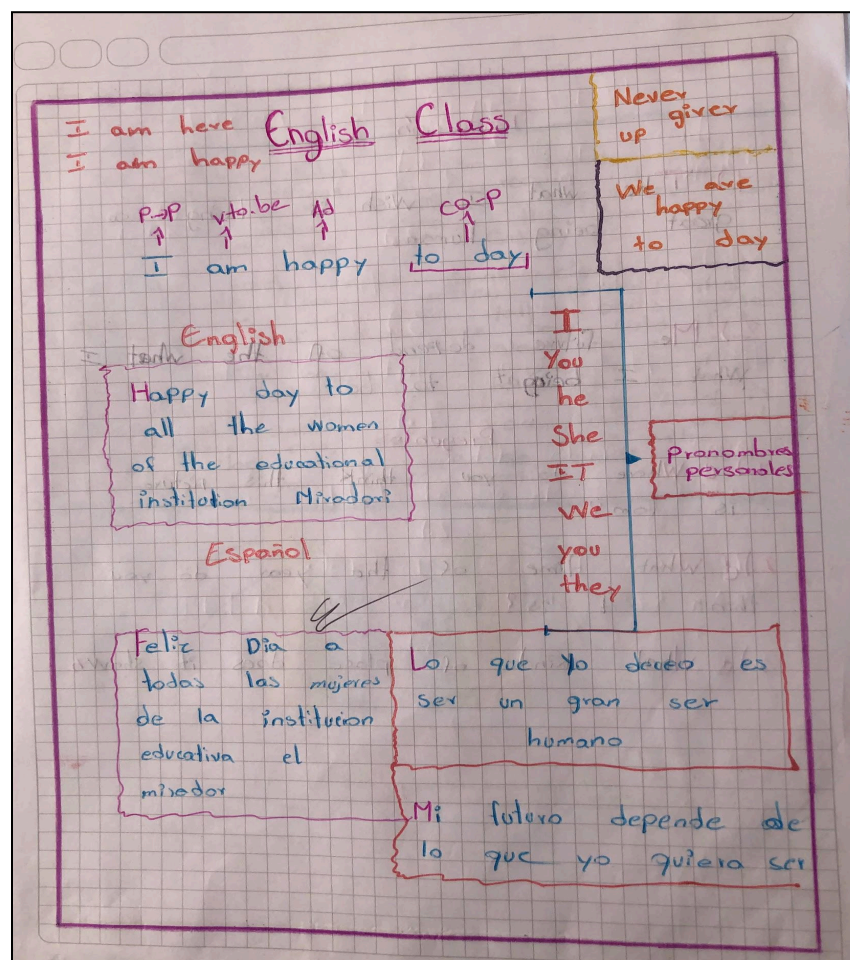 I am here
I am happy
English Class
Never
up giver
We are
happy
to day
P→P v to.be Ad CO-P
I am happy to day
English
Happy day to
all the women
of the educational
institution Miradori
I
You
he
She
IT
We
you
they
pronombres
personales
Español
Feliz Dia a
todas las mujeres
de la institucion
educativa el
mirador
Lo que yo deceo es
ser un gran ser
humano
Mi futuro depende de
lo que yo quiera ser